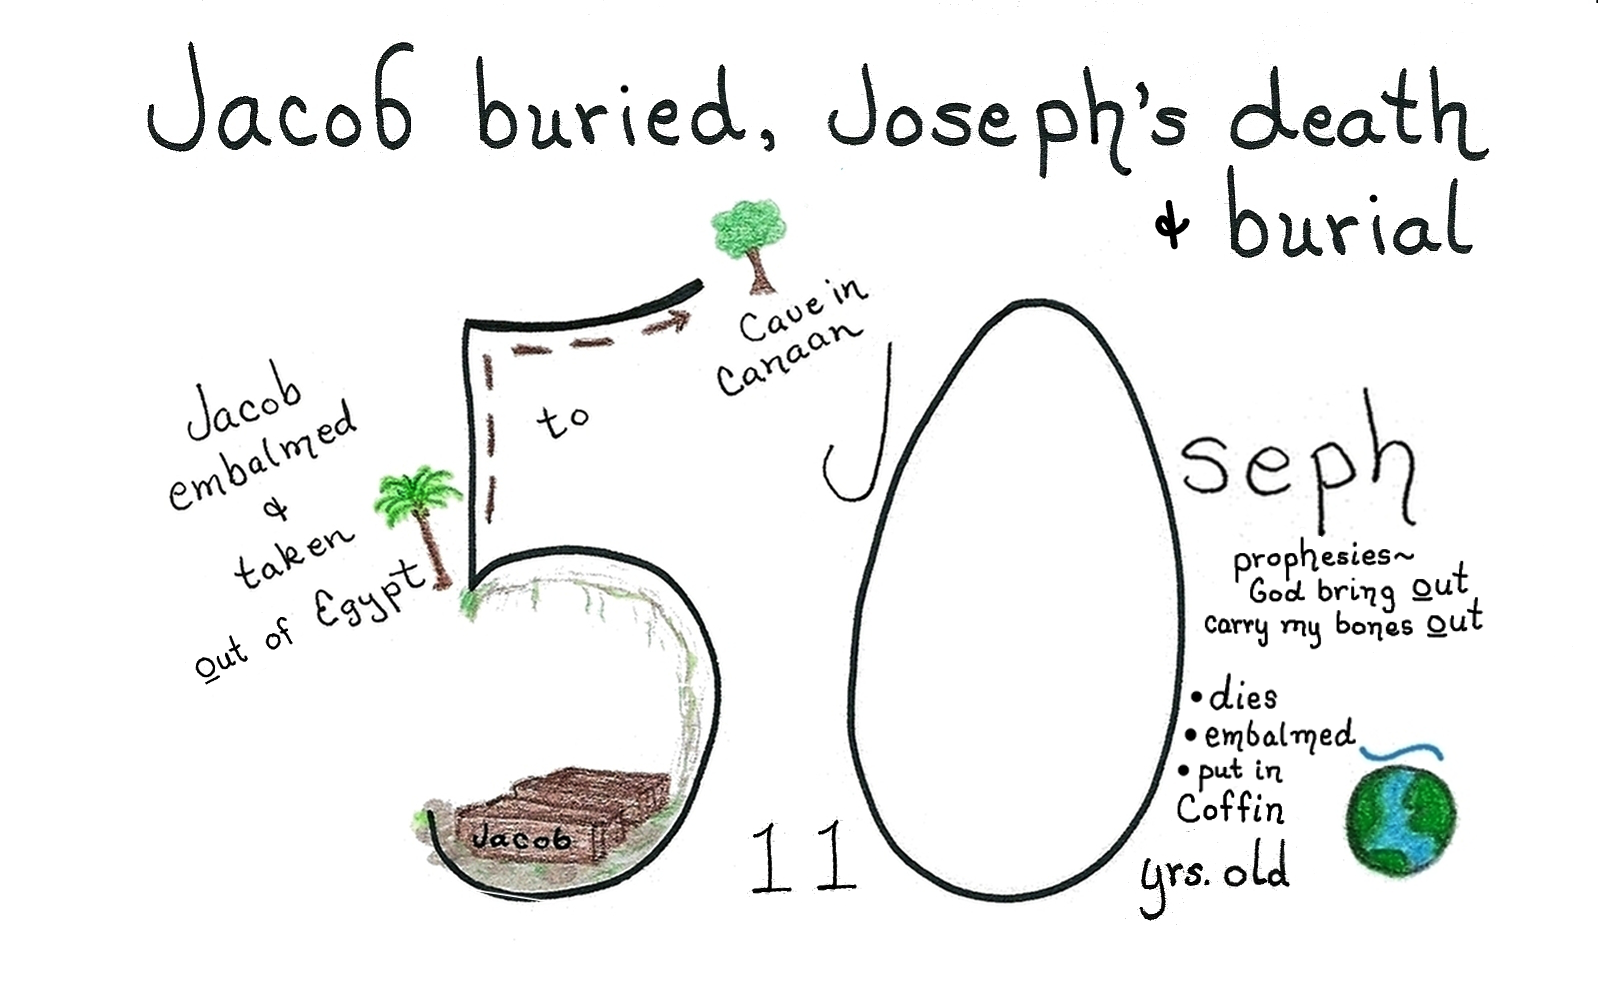 Jacob buried, Joseph's death
& burial
Jacob
embalmed
&
taken
out of Egypt
to
Cave in
Canaan
50
Jacob
Joseph
prophesies~
God bring out
carry my bones out
• dies
• embalmed
• put in
Coffin
110 yrs. old